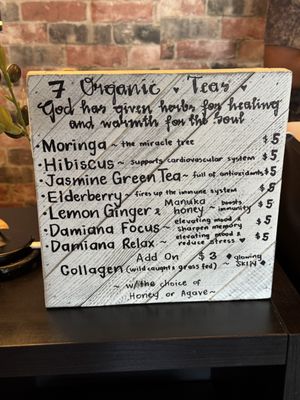 7 Organic ♥ Teas ♥
God has given herbs for healing
and warmth for the soul
• Moringa ~ the miracle tree $5
• Hibiscus ~ supports cardiovascular system $5
• Jasmine Green Tea ~ full of antioxidants $5
• Elderberry ~ fires up the immune system $5
• Lemon Ginger & Manuka honey ~ boosts immunity $5
• Damiana Focus ~ elevating mood & sharpen memory $5
• Damiana Relax ~ elevating mood & reduce stress ♥ $5
Add On $3
Collagen (wild caught & grass fed) ~ glowing SKIN
~ w/the choice of
Honey or Agave ~